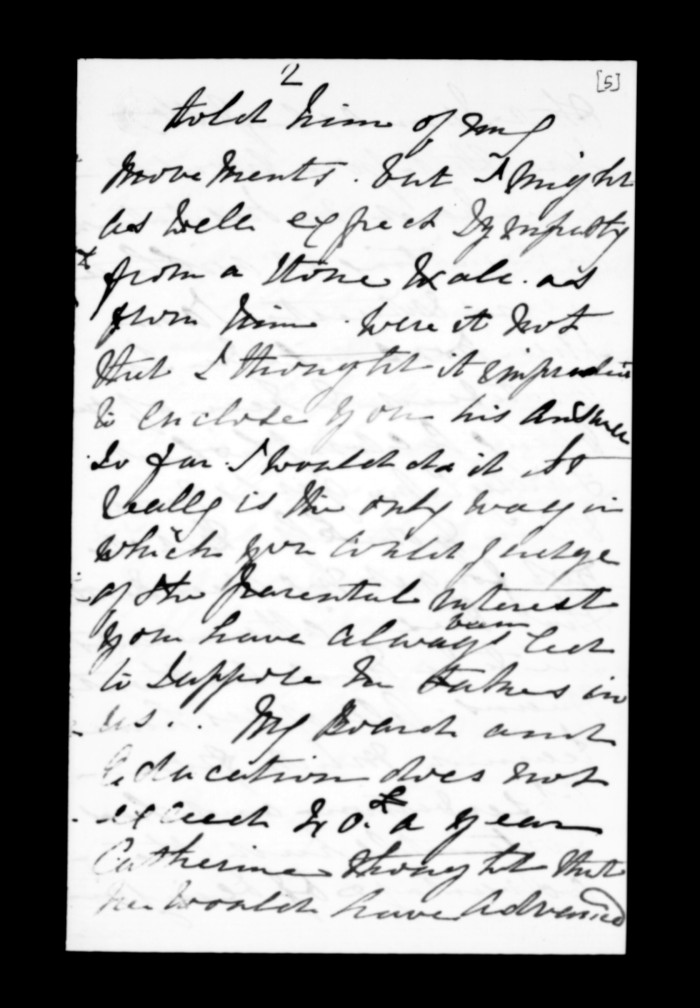 2
[5]
told him of my
movements. but I might
as well expect sympathy
from a stone wall. as
from him. were it not
that I thought it imprudent
to enclose you his answer
so far I would do it. It
really is the only way in
which you could judge
of the parental interest
been
you have always led
to suppose he takes in
us.. My Board and
Education does not
exceed 40.£ a year
Catherine thought that
he would have advanced